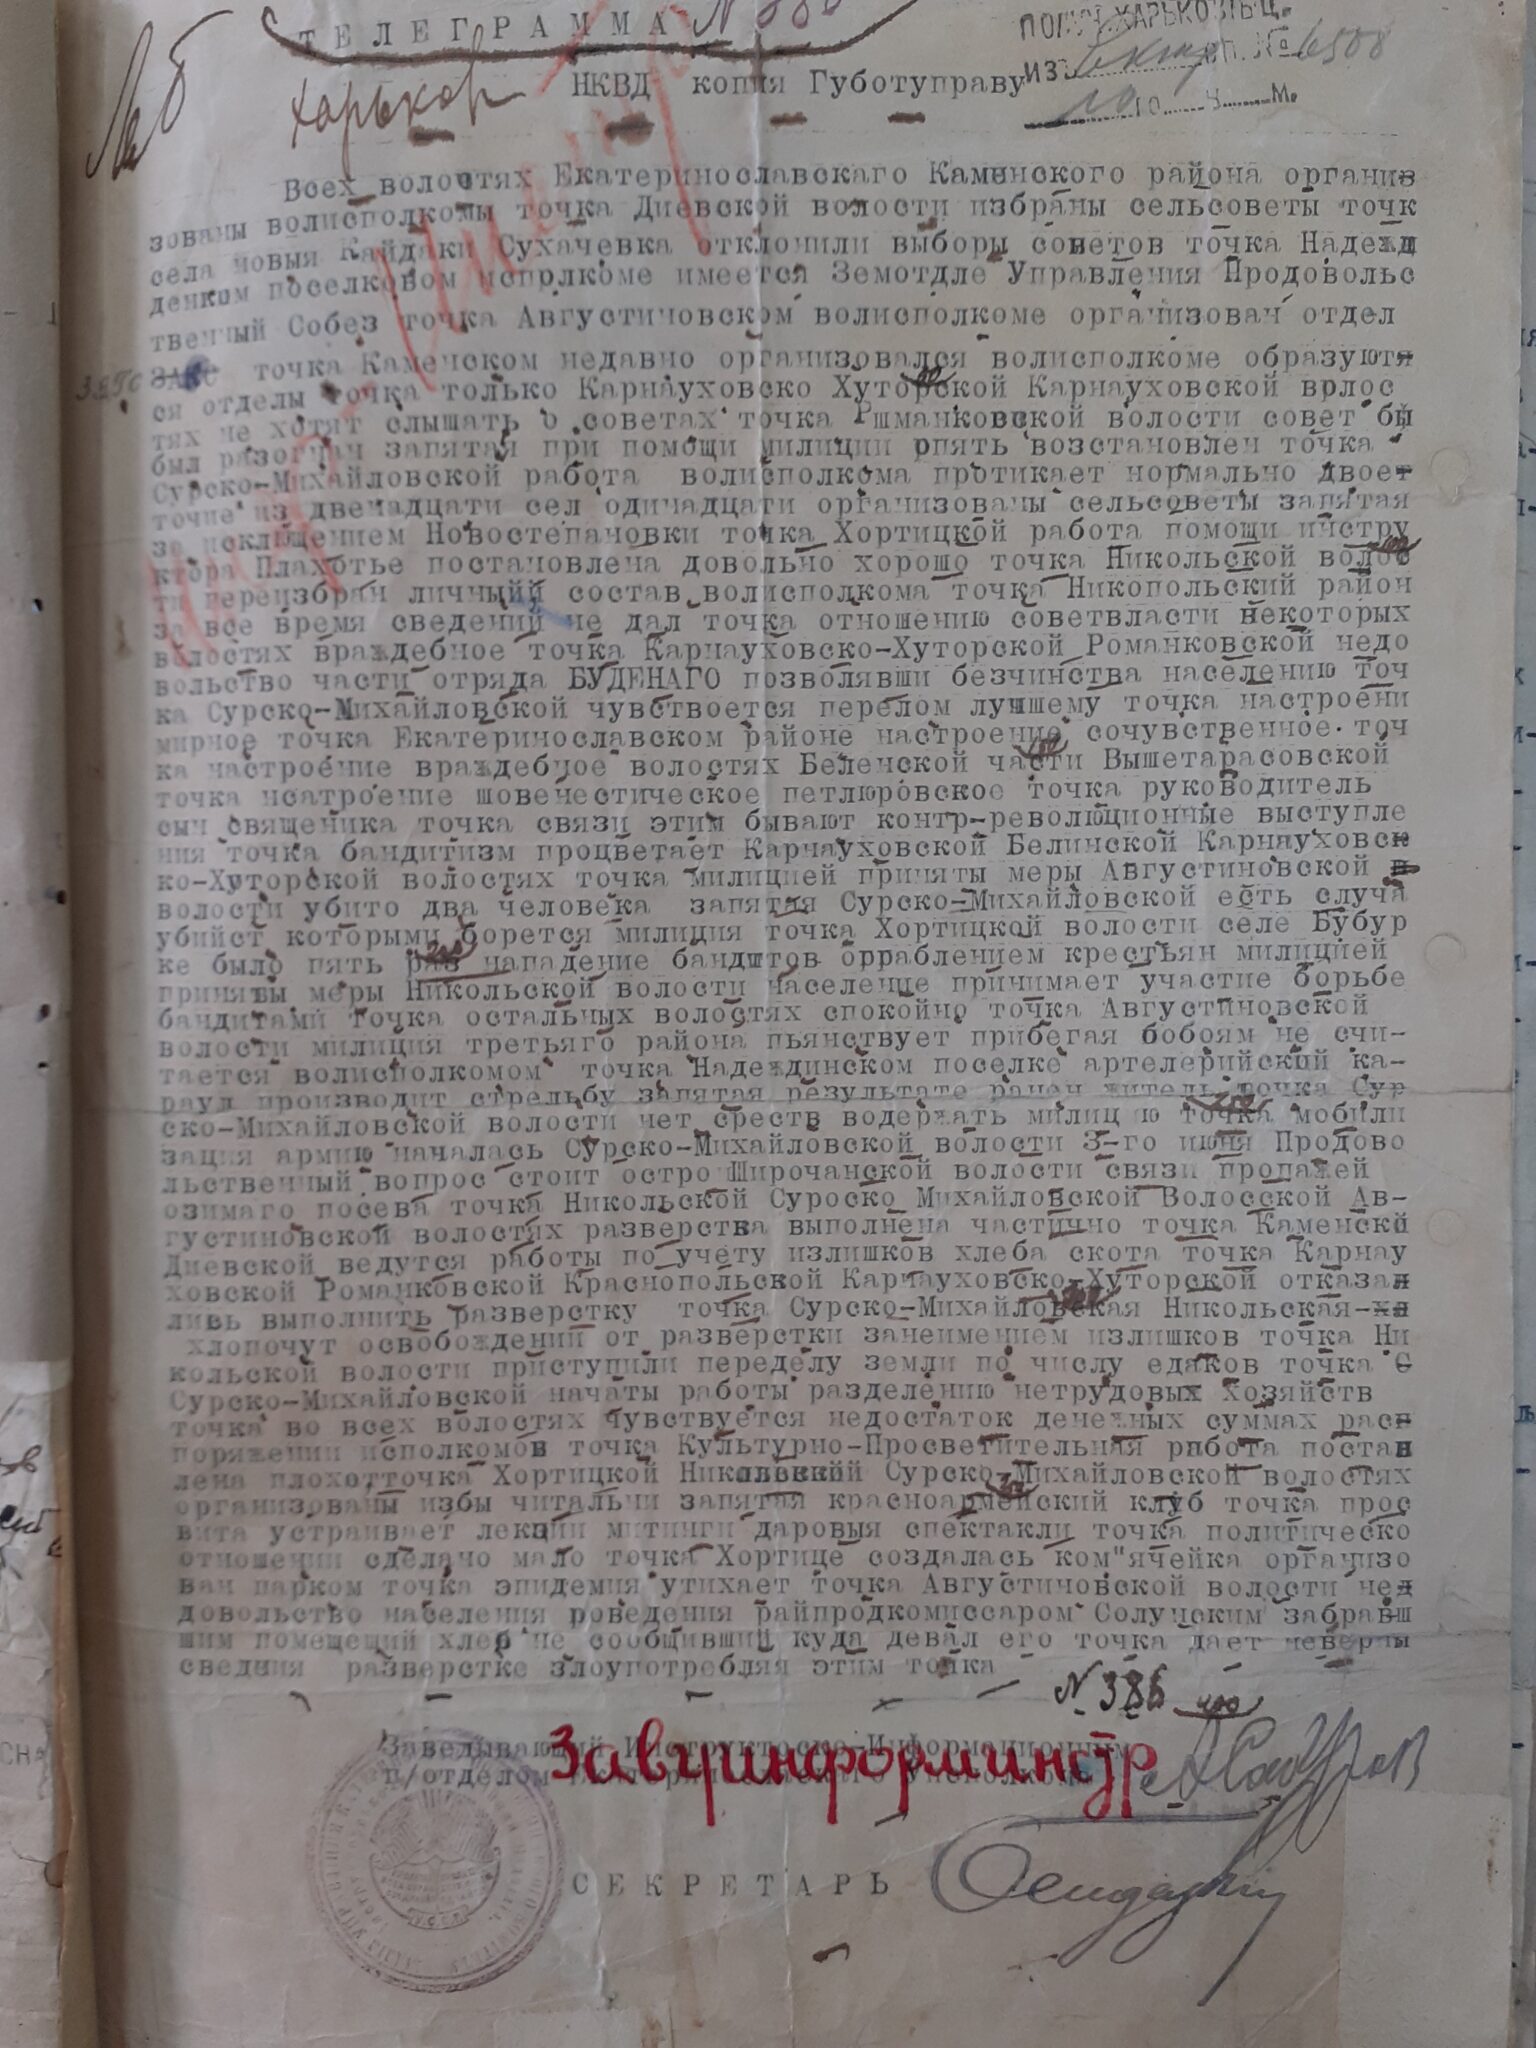 ТЕЛЕГРАММА N
ХАРЬКОВ
Харьков НКВД копия Губотуправу
ИЗ Екатр № 6508
Всех волостях Екатеринославскаго Каменского района организ
зованы волисполкомы точка Диевской волости избраны сельсоветы точк
села новыя Кайдаки Сухачевка отклонили выборы советов точка Надежд
денком поселковом исполкоме имеется Земотдле Управления Продовольс
твенный Собез точка Августиновском волисполкоме организован отдел
ЗАГС точка Каменском недавно организовался волисполкоме образуютя
ся отделы точка только Карнауховско Хуторской Карнауховской волос
тях не хотят слышать о советах точка Ршманковской волости совет бы
был разогнан запятая при помощи милиции опять возстановлен точка
Сурско-Михайловской работа волисполкома протикает нормально двоет
точие из двенадцати сел одинадцати организованы сельсоветы запятая
за исключением Новостепановки точка Хортицкой работа помощи инстру
ктора Плахотье постановлена довольно хорошо точка Никольской волос
ти переизбран личныйй состав волисполкома точка Никопольский район
за все время сведений не дал точка отношению советвласти некоторых
волостях враждебное точка Карнауховско-Хуторской Романковской недо
вольство части отряда БУДЕНАГО позволявши безчинства населению точ
ка Сурско-Михайловской чувствоется перелом лучшему точка настроени
мирное точка Екатеринославском районе настроение сочувственное. точ
ка настроение враждебное волостях Беленской части Вышетарасовской
точка нсатроение шовенестическое петлюровское точка руководитель
сын священика точка связи этим бывают контр-революционные выступле
ния точка бандитизм процветает Карнауховской Белинской Карнауховск
ко-Хуторской волостях точка милицией приняты меры Августиновской в
волости убито два человека запятая Сурско-Михайловской есть случа
убийст которыми борется милиция точка Хортицкой волости селе Бубур
ке было пять раз нападение бандитов орраблением крестьян милицией
приняты меры Никольской волости население принимает участие борьбе
бандитами точка остальных волостях спокойно точка Августиновской
волости милиция третьяго района пьянствует прибегая бобоям не счи-
тается волисполкомом точка Надеждинском поселке артелерийский ка-
раул производит стрельбу запятая результате ранен житель точка Сур
ско-Михайловской волости нет среств водержать милиц ю точка мобили
зация армию началась Сурско-Михайловской волости 3-го июня Продово
льственный вопрос стоит остро Широчанской волости связи пропажей
озимаго посева точка Никольской Суроско Михайловской Волосской Ав-
густиновской волостях разверстка выполнена частично точка Каменскй
Диевской ведутся работы по учету излишков хлеба скота точка Карнау
ховской Романковской Краснопольской Карнауховско-Хуторской отказал
лись выполнить разверстку точка Сурско-Михайловская Никольская-хл
хлопочут освобождении от разверстки занеимением излишков точка Ни
кольской волости приступили переделу земли по числу едаков точка С
Сурско-Михайловской начаты работы разделению нетрудовых хозяйств
точка во всех волостях чувствуется недостаток денежных суммах расп
поряжении исполкомов точка Культурно-Просветительная работа постан
лена плохотточка Хортицкой Никольской Сурско-Михайловской волостях
организованы избы читальни запятая красноармейский клуб точка прос
вита устраивает лекции митинги даровыя спектакли точка политическо
отношении сделано мало точка Хортице создалась ком"ячейка организо
ван парком точка эпидемия утихает точка Августиновской волости нед
довольство населения роведения райпродкомиссаром Солунским забравш
шим помещений хлеб не сообщивший куда девал его точка дает неверны
сведния разверстке злоупотребляя этим точка
N 386
Заведывающий Инструкторско-Информационным
п/отделом
Завгубинформинстр
СЕКРЕТАРЬ